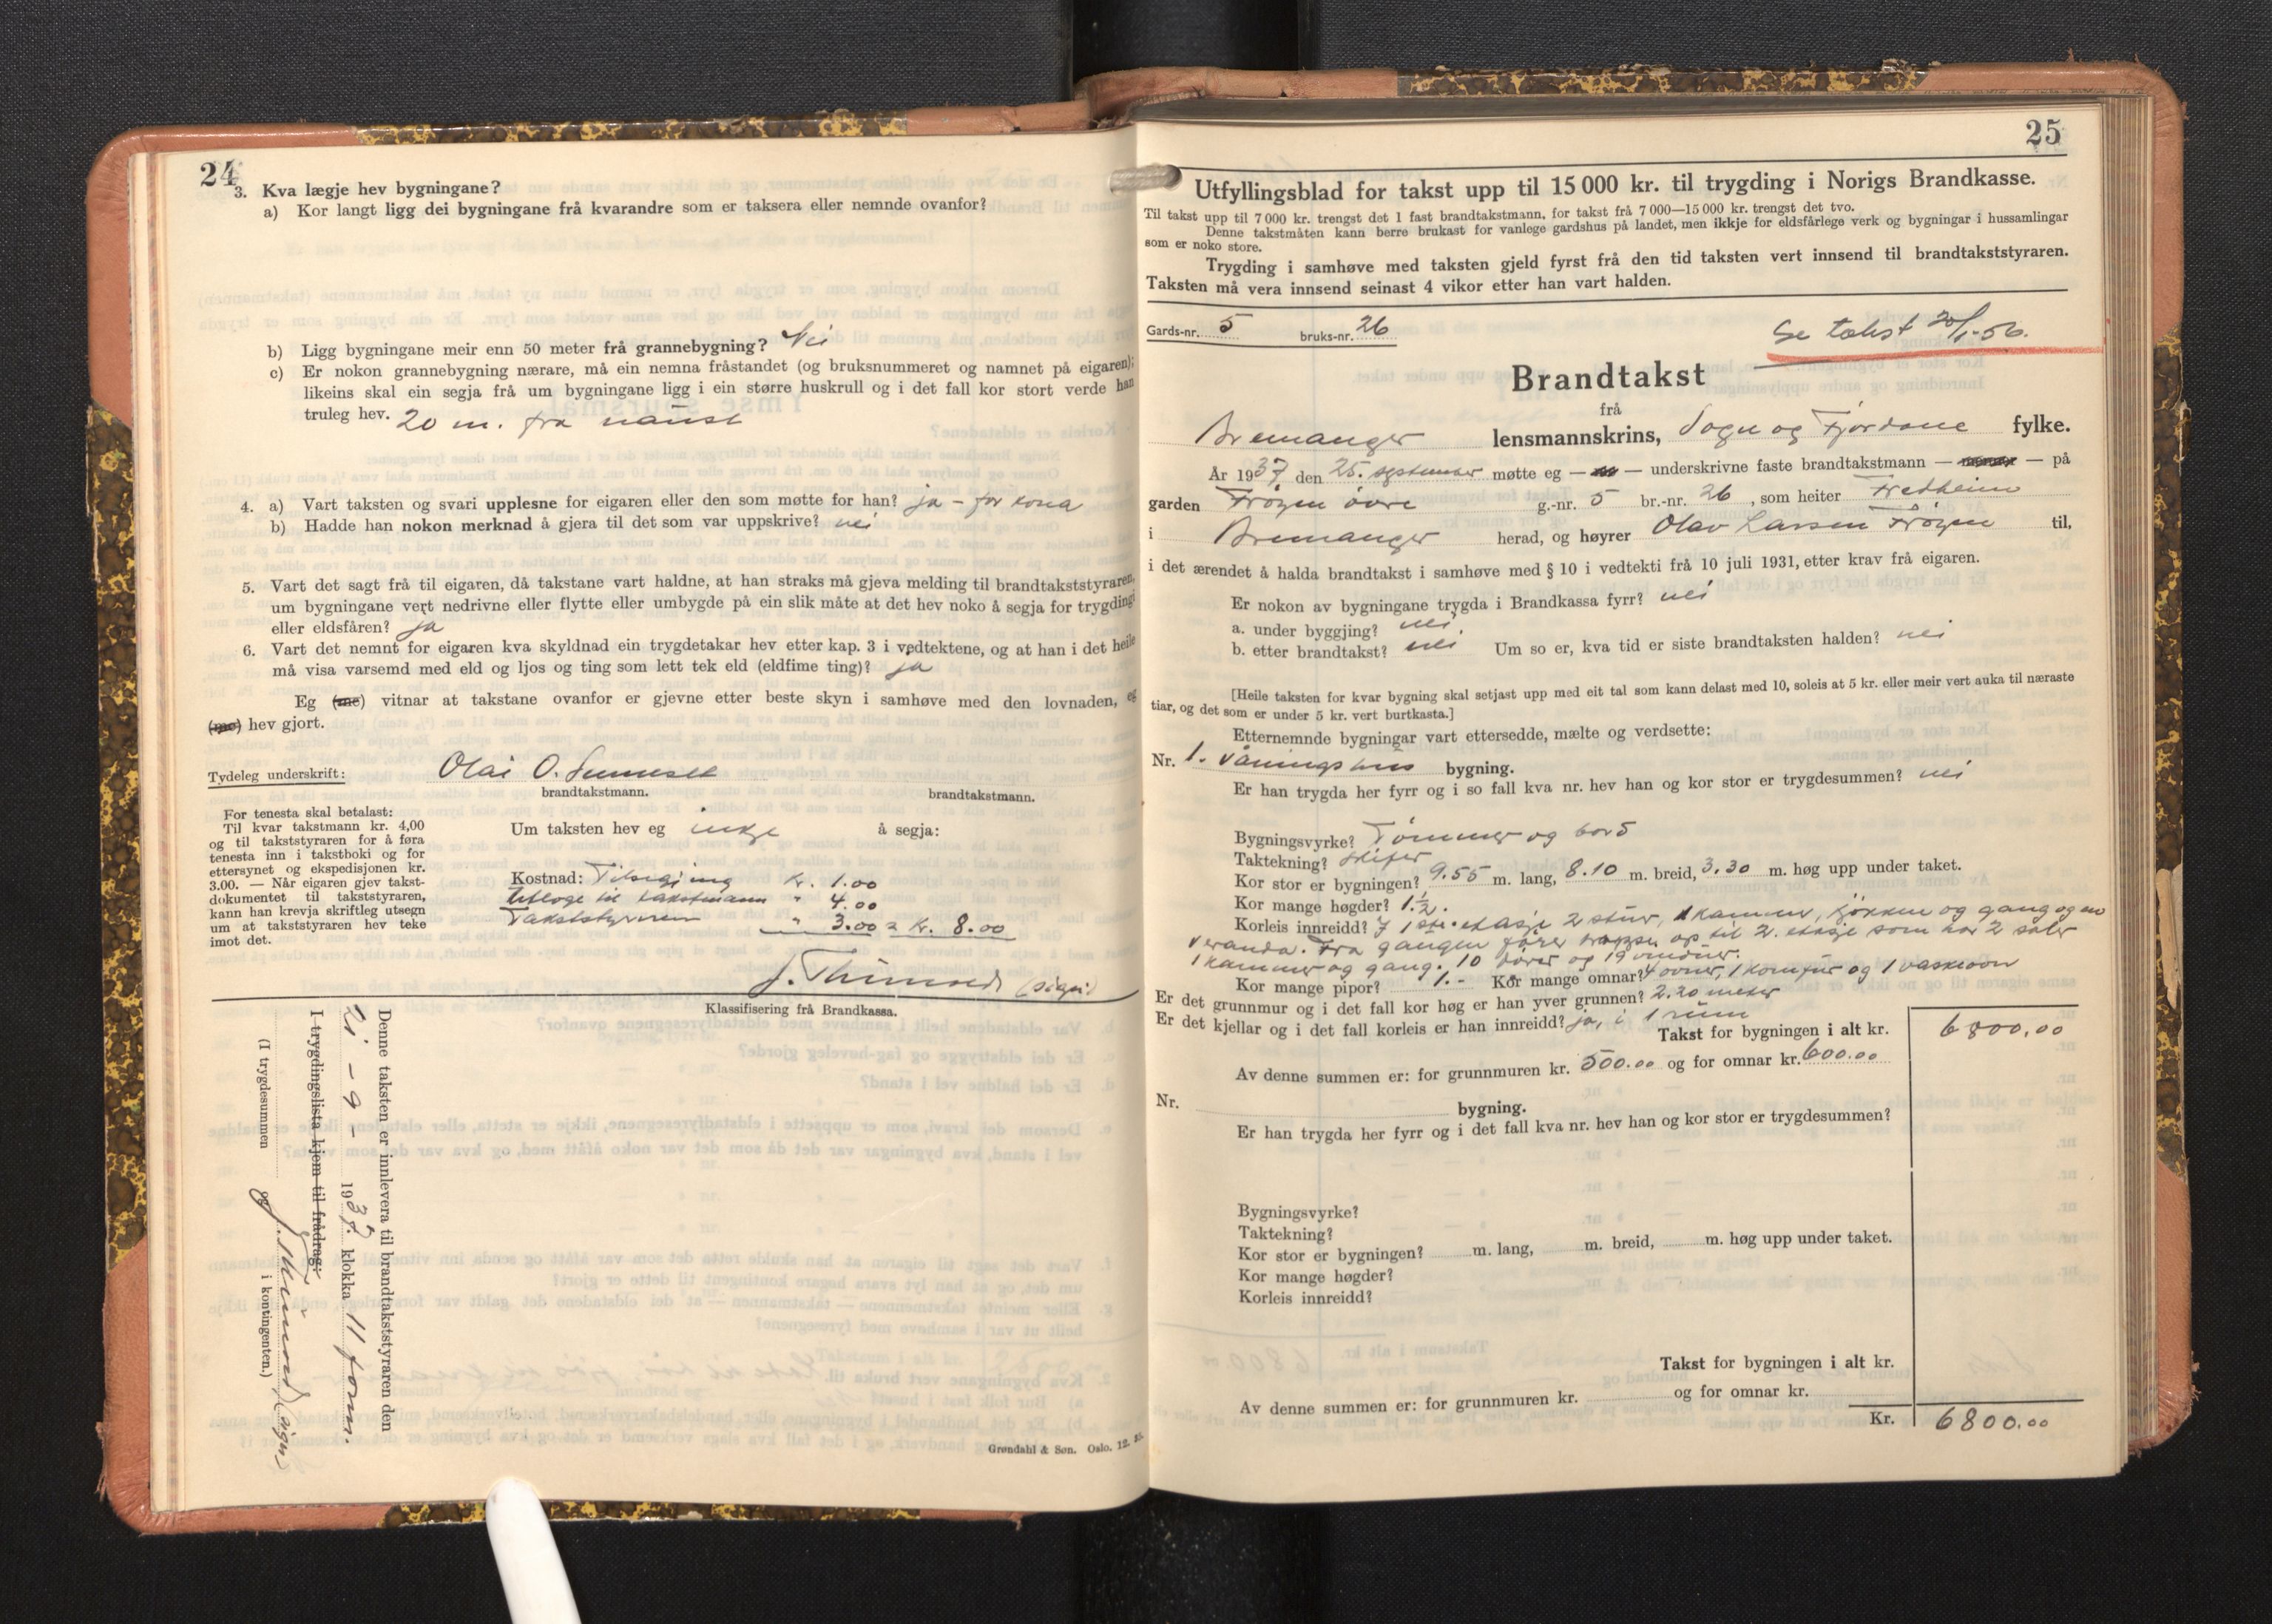 24
3. Kva lægje hev bygningane?
a) Kor langt ligg dei bygningane frå kvarandre som er taksera eller nemnde ovanfor?
b) Ligg bygningane meir enn 50 meter frå grannebygning? Nei
c) Er nokon grannebygning nærare, må ein nemna fråstandet (og bruksnummeret og namnet på eigaren);
likeins skal ein segja frå um bygningane ligg i ein større huskrull og i det fall kor stort verde han
truleg hev. 20 m. fra naust
4. a) Vart taksten og svari upplesne for eigaren eller den som møtte for han? ja - for kona
b) Hadde han nokon merknad å gjera til det som var uppskrive? nei
5. Vart det sagt frå til eigaren, då takstane vart haldne, at han straks må gjeva melding til brandtakststyraren,
um bygningane vert nedrivne eller flytte eller umbygde på ein slik måte at det hev noko å segja for trygdingi
eller eldsfåren? ja
6. Vart det nemnt for eigaren kva skyldnad ein trygdetakar hev etter kap. 3 i vedtektene, og at han i det heile
må visa varsemd med eld og ljos og ting som lett tek eld (eldfime ting)? ja
Eg (me) vitnar at takstane ovanfor er gjevne etter beste skyn i samhøve med den lovnaden, eg
(me) hev gjort.
Tydeleg underskrift: Olai O.
brandtakstmann. brandtakstmann.
For tenesta skal betalast:
Til kvar takstmann kr. 4,00
og til takststyraren for å føra
tenesta inn i takstboki og for
ettersynet og ekspedisjonen kr.
3.00. — Når eigaren gjev takst-
dokumentet til takststyraren,
kann han krevja skriftleg utsegn
um at takststyraren hev teke
imot det.
Um taksten hev eg inkje å segja:
Kostnad: Tilsigjing kr. 1.00
Utlegg til takstmann " 4.00
Takststyraren " 3.00 = kr. 8.00
(sign)
Klassifisering frå Brandkassa.
Denne taksten er innlevera til brandtakststyraren den
21 - 9 - 1937. klokka 11 form.
I trygdingslista kjem til frådrag:
(I trygdesummen og i kontingenten.)
(sign)
Grøndahl & Søn. Oslo. 12. 35.
25
Utfyllingsblad for takst upp til 15 000 kr. til trygding i Norigs Brandkasse.
Til takst upp til 7 000 kr. trengst det 1 fast brandtakstmann, for takst frå 7 000—15 000 kr. trengst det tvo.
Denne takstmåten kann berre brukast for vanlege gardshus på landet, men ikkje for eldsfårlege verk og bygningar i hussamlingar
som er noko store.
Trygding i samhøve med taksten gjeld fyrst frå den tid taksten vert innsend til brandtakststyraren.
Taksten må vera innsend seinast 4 vikor etter han vart halden.
Gards-nr. 5 bruks-nr. 26
Se takst 20/1-56.
Brandtakst
frå
Bremanger lensmannskrins, Sogn og Fjordane fylke.
År 1937 den 25. september møtte eg — — underskrivne faste brandtakstmann — — på
garden Frøyen øvre g.-nr. 5 br.-nr. 26, som heiter Fredheim
i Bremanger herad, og høyrer Olav Larsen Frøyen til,
i det ærendet å halda brandtakst i samhøve med § 10 i vedtekti frå 10 juli 1931, etter krav frå eigaren.
Er nokon av bygningane trygda i Brandkassa fyrr? nei
a. under byggjing? nei
b. etter brandtakst? nei Um so er, kva tid er siste brandtaksten halden? nei
[Heile taksten for kvar bygning skal setjast upp med eit tal som kann delast med 10, soleis at 5 kr. eller meir vert auka til næraste
tiar, og det som er under 5 kr. vert burtkasta.]
Etternemnde bygningar vart ettersedde, mælte og verdsette:
Nr. 1. Våningshus bygning.
Er han trygda her fyrr og i so fall kva nr. hev han og kor stor er trygdesummen? nei
Bygningsvyrke? Tømmer og bord
Taktekning? skifer
Kor stor er bygningen? 9.55 m. lang, 8.10 m. breid, 3.30 m. høg upp under taket.
Kor mange høgder? 1 1/2.
Korleis innreidd? I 1ste. etasje 2 stuer, 1 kammer, kjøkken og gang og en
veranda. Fra gangen fører trappe op til 2. etasje som har 2 saler
1 kammer og gang. 10 dører og 19 vinduer.
Kor mange pipor? 1.- Kor mange omnar? 4 ovner, 1 komfur og 1 vaskeovn
Er det grunnmur og i det fall kor høg er han yver grunnen? 2.20 meter
Er det kjellar og i det fall korleis er han innreidd? ja, i 1 rum
Takst for bygningen i alt kr. 6800,00
Av denne summen er: for grunnmuren kr. 500.00 og for omnar kr. 600.00
Nr. bygning.
Er han trygda her fyrr og i det fall kva nr. hev han og kor stor er trygdesummen?
Bygningsvyrke?
Taktekning?
Kor stor er bygningen? m. lang, m. breid, m. høg upp under taket.
Kor mange høgder?
Korleis innreidd?
Takst for bygningen i alt kr.
Av denne summen er: for grunnmuren kr. og for omnar kr.
Kr. 6800.00